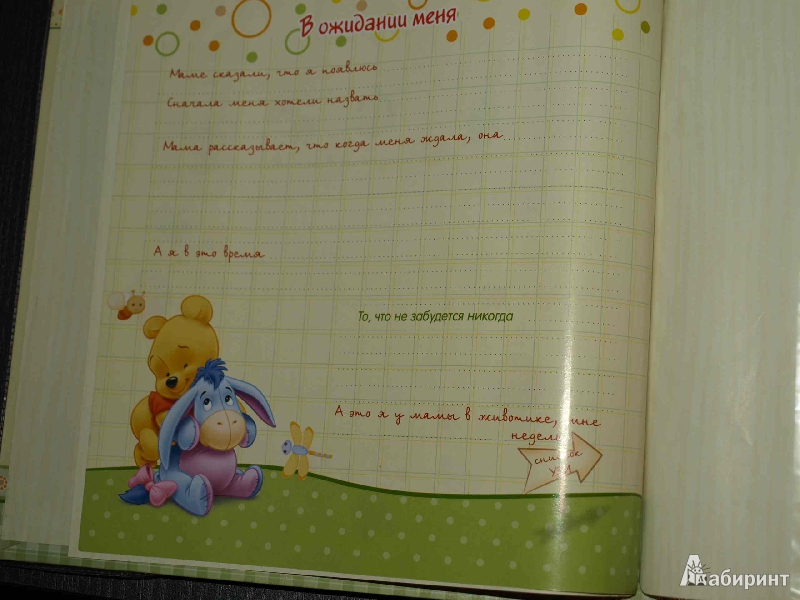 В ожидании меня
Маме сказали, что я появлюсь
Сначала меня хотели назвать
Мама рассказывает, что когда меня ждала, она
А я в это время
То, что не забудется никогда
А это я у мамы в животике, мне
недель
снимок
УЗИ
Лабиринт